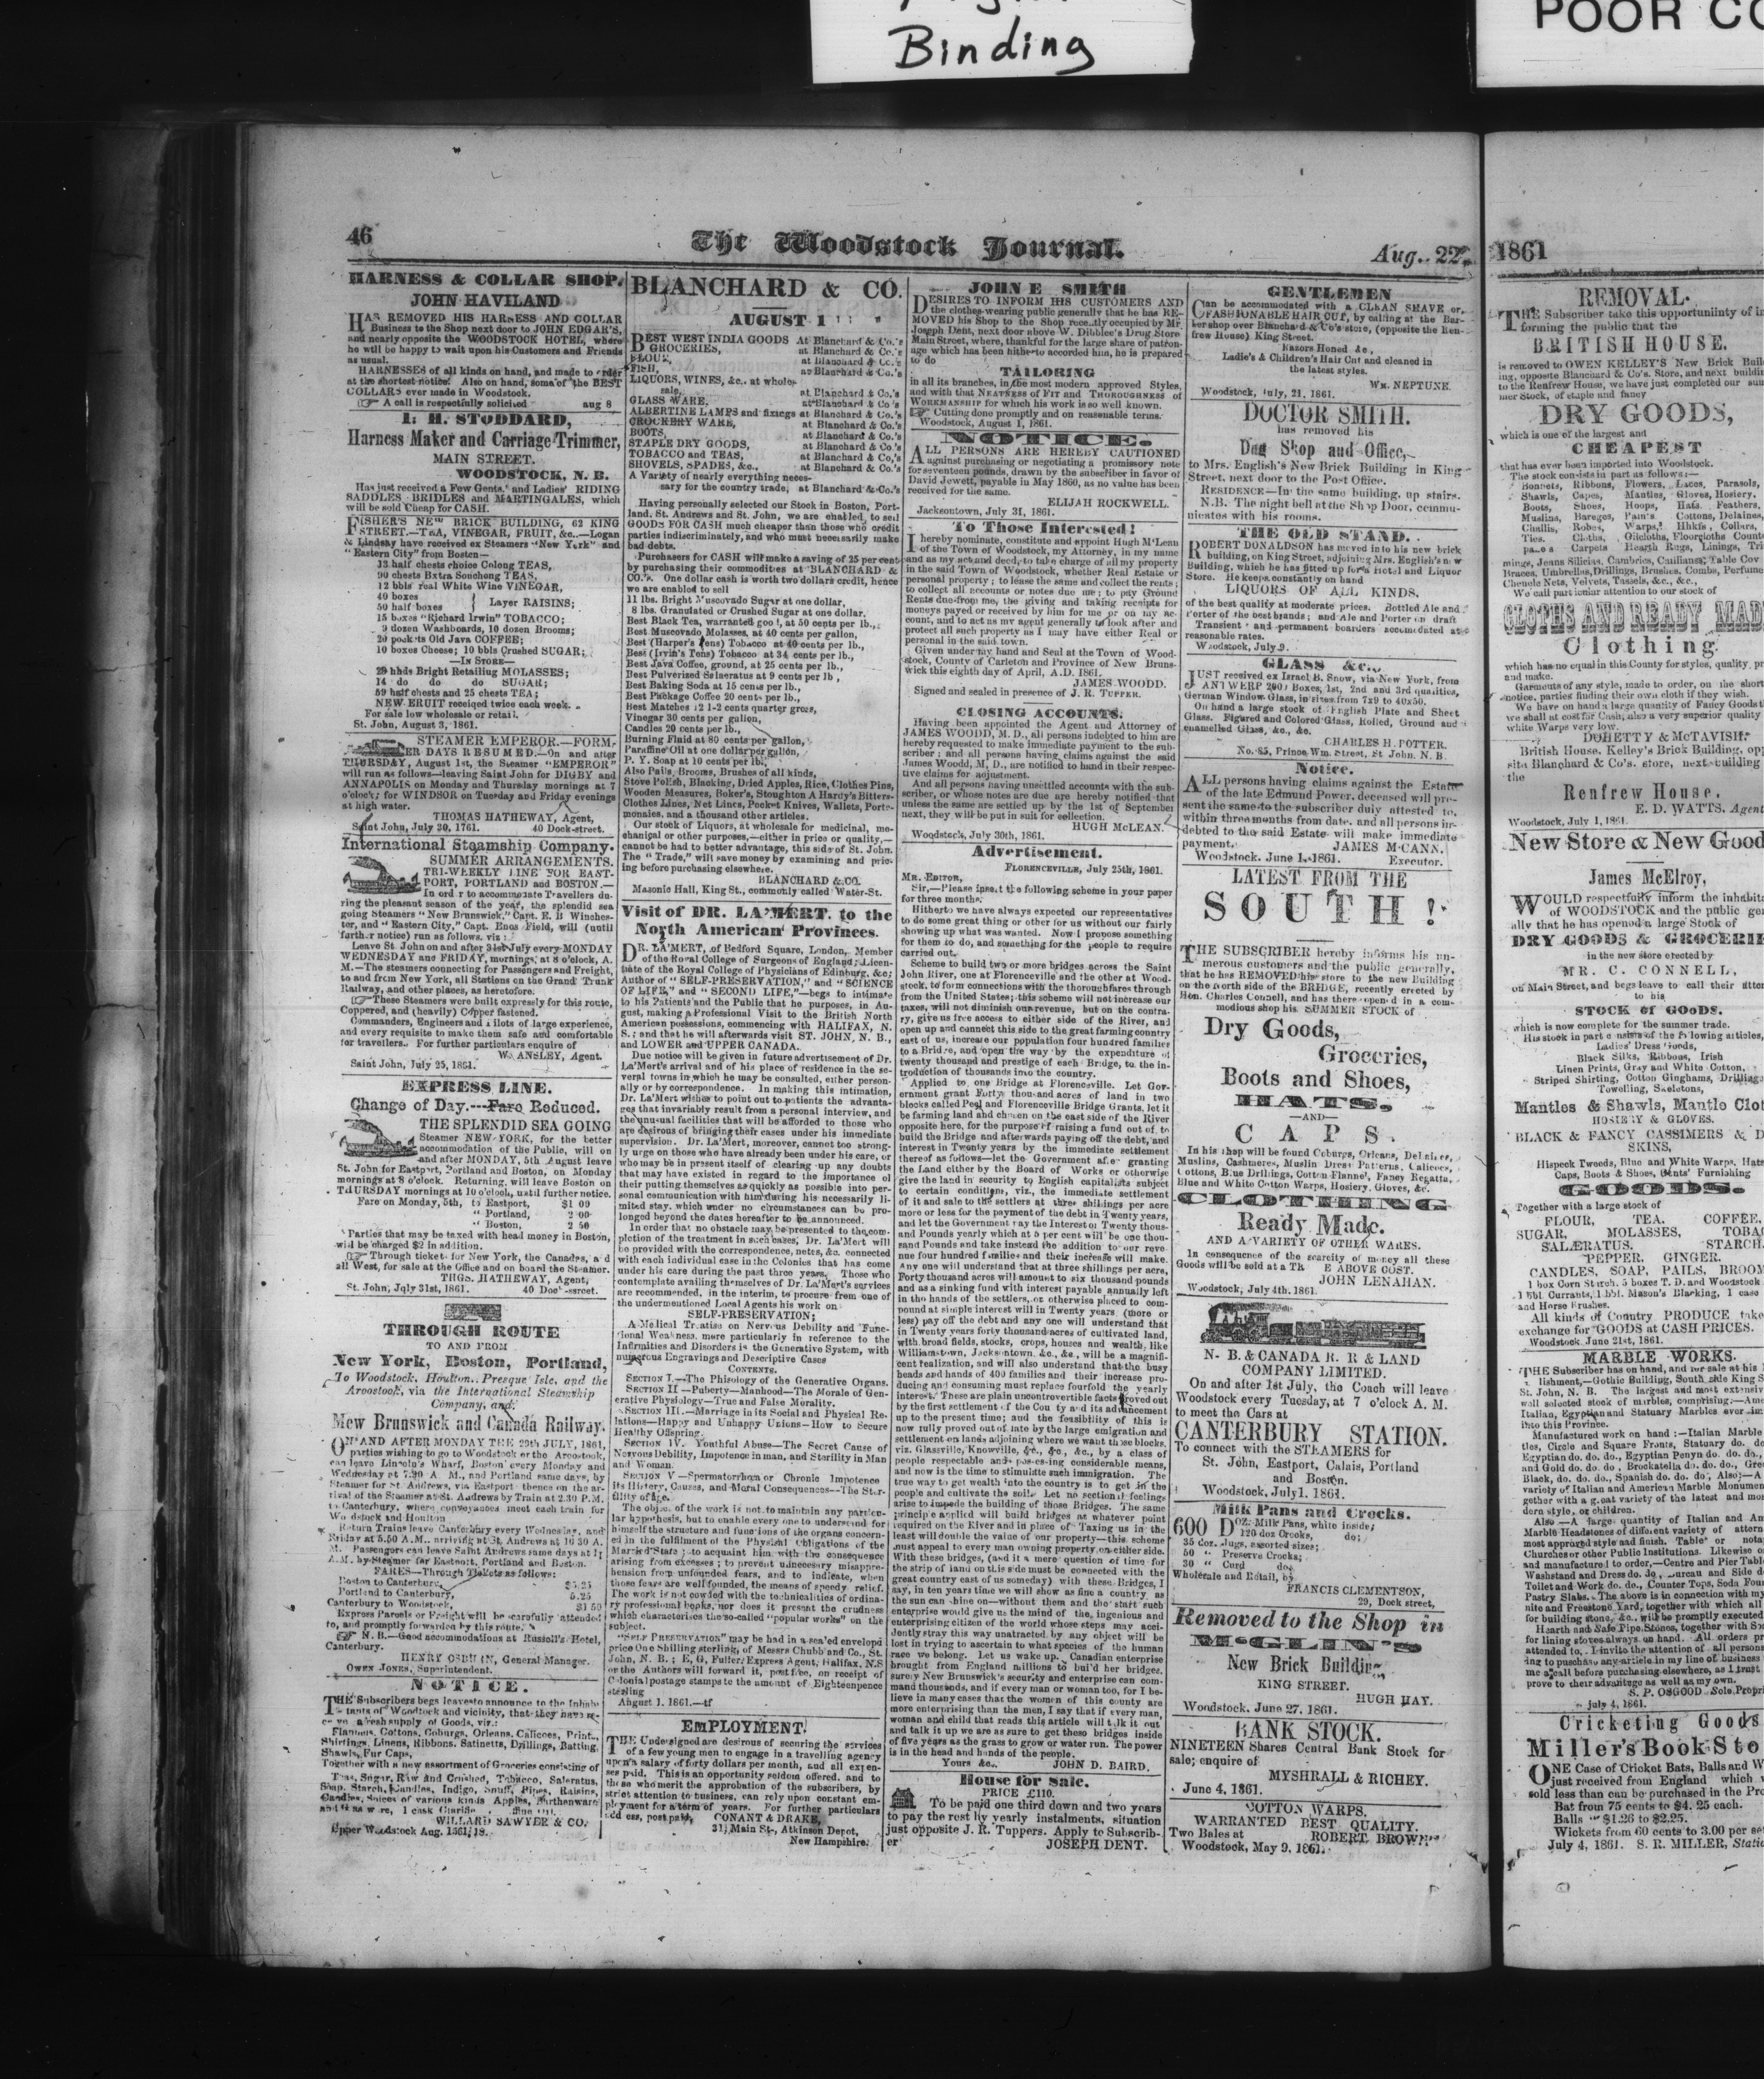 Binding
POOR CO
46
The Woodstock Journal.
Aug. 22,
1861
HARNESS & COLLAR SHOP.
JOHN HAVILAND
HAS REMOVED HIS HARNESS AND COLLAR
Business to the Shop next door to JOHN EDGAR'S,
and nearly opposite the WOODSTOCK HOTEL, where
he will be happy to wait upon his Customers and Friends
as usual.
HARNESSES of all kinds on hand, and made to order
at the shortest notice. Also on hand, some of the BEST
COLLARS ever made in Woodstock.
A call is respectfully solicited aug 8
I. H. STODDARD,
Harness Maker and Carriage Trimmer,
MAIN STREET.
WOODSTOCK, N. B.
Has just received a Few Gents.' and Ladies' RIDING
SADDLES BRIDLES and MARTINGALES, which
will be sold Cheap for CASH.
FISHER'S NEW BRICK BUILDING, 62 KING
STREET.—TEA, VINEGAR, FRUIT, &c.—Logan
& Lindsay have received ex Steamers "New York" and
"Eastern City" from Boston—
33 half chests choice Colong TEAS,
90 chests Extra Souchong TEAS,
12 bbls real White Wine VINEGAR,
40 boxes
50 half boxes } Layer RAISINS;
15 boxes "Richard Irwin" TOBACCO;
9 dozen Washboards, 10 dozen Brooms;
20 pockets Old Java COFFEE;
10 boxes Cheese; 10 bbls Crushed SUGAR;
—IN STORE—
29 hhds Bright Retailing MOLASSES;
14 do do do SUGAR;
59 half chests and 25 chests TEA;
NEW FRUIT received twice each week.
For sale low wholesale or retail.
St. John, August 3, 1861.
STEAMER EMPEROR.—FORM-
ER DAYS RESUMED.—On and after
THURSDAY, August 1st, the Steamer "EMPEROR"
will run as follows—leaving Saint John for DIGBY and
ANNAPOLIS on Monday and Thursday mornings at 7
o'clock; for WINDSOR on Tuesday and Friday evenings
at high water.
THOMAS HATHEWAY, Agent,
Saint John, July 30, 1761. 40 Dock-street.
International Steamship Company.
SUMMER ARRANGEMENTS.
TRI-WEEKLY LINE FOR EAST-
PORT, PORTLAND and BOSTON.—
In order to accommodate Travellers du-
ring the pleasant season of the year, the splendid sea
going Steamers "New Brunswick," Capt. E. B Winches-
ter, and "Eastern City," Capt. Enos Field, will (until
further notice) run as follows, viz:
Leave St John on and after 31st July every MONDAY
WEDNESDAY and FRIDAY, mornings, at 8 o'clock, A.
M.—The steamers connecting for Passengers and Freight,
to and from New York, all Stations on the Grand Trunk
Railway, and other places, as heretofore.
These Steamers were built expressly for this route,
Coppered, and (heavily) Copper fastened.
Commanders, Engineers and Pilots of large experience,
and every requisite to make them safe and comfortable
for travellers. For further particulars enquire of
W. ANSLEY, Agent.
Saint John, July 25, 1861.
EXPRESS LINE.
Change of Day.---Fare Reduced.
THE SPLENDID SEA GOING
Steamer NEW-YORK, for the better
accommodation of the Public, will on
and after MONDAY, 5th August leave
St. John for Eastport, Portland and Boston, on Monday
mornings at 8 o'clock. Returning, will leave Boston on
THURSDAY mornings at 10 o'clock, until further notice.
Fare on Monday, 5th, to Eastport, $1 09
" Portland, 2 00
" Boston, 2 50
Parties that may be taxed with head money in Boston,
will be charged $2 in addition.
Through ticket for New York, the Canadas, and
all West, for sale at the Office and on board the Steamer.
THOS. HATHEWAY, Agent,
St. John, July 31st, 1861. 40 Dock-street.
THROUGH ROUTE
TO AND FROM
New York, Boston, Portland,
To Woodstock, Houlton, Presque Isle, and the
Aroostook, via the International Steamship
Company, and
New Brunswick and Canada Railway.
ON AND AFTER MONDAY THE 29th JULY, 1861,
parties wishing to go to Woodstock or the Aroostook,
can leave Lincoln's Wharf, Boston every Monday and
Wednesday at 7.30 A. M., and Portland same days, by
Steamer for St. Andrews, via Eastport thence on the ar-
rival of the Steamer at St. Andrews by Train at 2.30 P.M.
to Canterbury, where conveyances meet each train for
Woodstock and Houlton
Return Trains leave Canterbury every Wednesday, and
Friday at 5.50 A.M., arriving at St. Andrews at 10 30 A.
M. Passengers can leave Saint Andrews same days at
A.M. by Steamer for Eastport, Portland and Boston.
FARES—Through Tickets as follows:
Boston to Canterbury, $5.25
Portland to Canterbury, 5.25
Canterbury to Woodstock, $1 50
Express Parcels or Freight will be carefully attended
to, and promptly forwarded by this route.
N. B.—Good accommodations at Russell's Hotel,
Canterbury.
HENRY OSBURN, General Manager.
OWEN JONES, Superintendent.
NOTICE.
THE Subscribers begs leaves to announce to the Inhabi-
tants of Woodtock and vicinity, that they have re-
ceived a fresh supply of Goods, viz.:
Flannels, Cottons, Coburgs, Orleans, Calicoes, Prints,
Shirtings, Linens, Ribbons, Satinetts, Drillings, Batting,
Shawls, Fur Caps,
Together with a new assortment of Groceries consisting of
Teas, Sugar, Raw And Crushed, Tobacco, Saleratus,
Soap, Starch, Candles, Indigo, Snuff, Pipes, Raisins,
Candles, Spices of various kinds Apples, Earthenware
WILLARD SAWYER & CO.
Upper Woodstock Aug. 1861, 18.
BLANCHARD & CO.
AUGUST 1
BEST WEST INDIA GOODS At Blanchard & Co.'s
GROCERIES, at Blanchard & Co.'s
FLOUR, at Blanchard & Co.'s
FISH, at Blanchard & Co.'s
LIQUORS, WINES, &c., at whole-
sale, at Blanchard & Co.'s
GLASS WARE, at Blanchard & Co.'s
ALBERTINE LAMPS and fixings at Blanchard & Co.'s
CROCKERY WARE, at Blanchard & Co.'s
BOOTS, at Blanchard & Co.'s
STAPLE DRY GOODS, at Blanchard & Co.'s
TOBACCO and TEAS, at Blanchard & Co.'s
SHOVELS, SPADES, &c., at Blanchard & Co.'s
A Variety of nearly everything neces-
sary for the country trade, at Blanchard & Co.'s
Having personally selected our Stock in Boston, Port-
land, St. Andrews and St. John, we are enabled to sell
GOODS FOR CASH much cheaper than those who credit
parties indiscriminately, and who must necessarily make
bad debts.
Purchasers for CASH will make a saving of 25 per cent
by purchasing their commodities at BLANCHARD &
CO.'s. One dollar cash is worth two dollars credit, hence
we are enabled to sell
11 lbs. Bright Muscovado Sugar at one dollar,
8 lbs. Granulated or Crushed Sugar at one dollar,
Best Black Tea, warranted good, at 50 cents per lb.,
Best Muscovado Molasses, at 40 cents per gallon,
Best (Harper's Tens) Tobacco at 40 cents per lb.,
Best (Irvin's Tens) Tobacco at 34 cents per lb.,
Best Java Coffee, ground, at 25 cents per lb.,
Best Pulverized Salaeratus at 9 cents per lb,
Best Baking Soda at 15 cents per lb.,
Best Package Coffee 20 cents per lb.,
Best Matches 12 1-2 cents quarter gross,
Vinegar 30 cents per gallon,
Candles 20 cents per lb.,
Burning Fluid at 80 cents per gallon,
Paraffine Oil at one dollar per gallon,
P. Y. Soap at 10 cents per lb.,
Also Pails, Brooms, Brushes of all kinds,
Stove Polish, Blacking, Dried Apples, Rice, Clothes Pins,
Wooden Measures, Boker's, Stoughton & Hardy's Bitters-
Clothes Lines, Net Lines, Pocket Knives, Wallets, Porte-
monaies, and a thousand other articles.
Our stock of Liquors, at wholesale for medicinal, me-
chanical or other purposes,—either in price or quality,—
cannot be had to better advantage, this side of St. John.
The "Trade," will save money by examining and pric-
ing before purchasing elsewhere.
BLANCHARD & CO.
Masonic Hall, King St., commonly called Water-St.
Visit of DR. LA'MERT. to the
North American Provinces.
DR. LA'MERT, of Bedford Square, London, Member
of the Royal College of Surgeons of England; Licen-
tiate of the Royal College of Physicians of Edinburg, &c;
Author of "SELF-PRESERVATION," and "SCIENCE
OF LIFE," and "SECOND LIFE,"—begs to intimate
to his Patients and the Public that he purposes, in Au-
gust, making a Professional Visit to the British North
American possessions, commencing with HALIFAX, N.
S.; and that he will afterwards visit ST. JOHN, N. B.,
and LOWER and UPPER CANADA.
Due notice will be given in future advertisement of Dr.
La'Mert's arrival and of his place of residence in the se-
veral towns in which he may be consulted, either person-
ally or by correspondence. In making this intimation,
Dr. La'Mert wishes to point out to patients the advanta-
ges that invariably result from a personal interview, and
the unusual facilities that will be afforded to those who
are desirous of bringing their cases under his immediate
supervision. Dr. La'Mert, moreover, cannot too strong-
ly urge on those who have already been under his care, or
who may be in present itself of clearing up any doubts
that may have existed in regard to the importance of
their putting themselves as quickly as possible into per-
sonal communication with him during his necessarily li-
mited stay, which under no circumstances can be pro-
longed beyond the dates hereafter to be announced.
In order that no obstacle may be presented to the com-
pletion of the treatment in such cases, Dr. La'Mert will
be provided with the correspondence, notes, &c. connected
with each individual case in the Colonies that has come
under his care during the past three years. Those who
contemplate availing themselves of Dr. La'Mert's services
are recommended, in the interim, to procure from one of
the undermentioned Local Agents his work on
SELF-PRESERVATION;
A Medical Treatise on Nervous Debility and Func-
tional Weakness, more particularly in reference to the
Infirmities and Disorders is the Generative System, with
numerous Engravings and Descriptive Cases
CONTENTS.
SECTION I.—The Phisology of the Generative Organs.
SECTION II—Puberty—Manhood—The Morale of Gen-
erative Physiology—True and False Morality.
SECTION III.—Marriage in its Social and Physical Re-
lations—Happy and Unhappy Unions—How to Secure
Healthy Offspring.
SECTION IV. Youthful Abuse—The Secret Cause of
Nervous Debility, Impotence in man, and Sterility in Man
and Woman.
SECTION V—Spermatorrhœa or Chronic Impotence
its History, Causes, and Moral Consequences—The Ster-
ility of age.
The object of the work is not to maintain any particu-
lar hypothesis, but to enable every one to understand for
himself the structure and functions of the organs concern-
ed in the fulfilment of the Physical Obligations of the
Married State; to acquaint him with the consequence
arising from excesses; to prevent unnecessary misappre-
hension from unfounded fears, and to indicate, when
those fears are well founded, the means of speedy relief.
The work is not cowded with the technicalities of ordina-
ry professional books, nor does it present the crudness
which characterises the so-called "popular works" on the
subject.
"SELF PRESERVATION" may be had in a sealed envelope
price One Shilling sterling, of Messrs Chubb and Co., St.
John, N. B.; E, G, Fuller, Express Agent, Halifax, N.S
or the Authors will forward it, post free, on receipt of
Colonial postage stamps to the amount of Eighteenpence
sterling
August 1, 1861.—tf
EMPLOYMENT.
THE Undersigned are desirous of securing the services
of a few young men to engage in a travelling agency
upon a salary of forty dollars per month, and all expen-
ses paid. This is an opportunity seldom offered, and to
those who merit the approbation of the subscribers, by
strict attention to business, can rely upon constant em-
ployment for a term of years. For further particulars
address, post paid, CONANT & DRAKE,
31, Main St., Atkinson Depot,
New Hampshire.
JOHN E SMITH
DESIRES TO INFORM HIS CUSTOMERS AND
the clothes-wearing public generally that he has RE-
MOVED his Shop to the Shop recently occupied by Mr.
Joseph Dent, next door above W. Dibblee's Drug Store
Main Street, where, thankful for the large share of patron-
age which has been hitherto accorded him, he is prepared
to do
TAILORING
in all its branches, in the most modern approved Styles,
and with that NEATNESS of FIT and THOROUGHNESS of
WORKMANSHIP for which his work is so well known.
Cutting done promptly and on reasonable terms.
Woodstock, August 1, 1861.
NOTICE.
ALL PERSONS ARE HEREBY CAUTIONED
against purchasing or negotiating a promissory note
for seventeen pounds, drawn by the subscriber in favor of
David Jewett, payable in May 1860, as no value has been
received for the same.
ELIJAH ROCKWELL.
Jacksontown, July 31, 1861.
To Those Interested!
I hereby nominate, constitute and appoint Hugh M'Lean
of the Town of Woodstock, my Attorney, in my name
and as my act and deed, to take charge of all my property
in the said Town of Woodstock, whether Real Estate or
personal property; to lease the same and collect the rents;
to collect all accounts or notes due me; to pay Ground
Rents due from me, the giving and taking receipts for
moneys payed or received by him for me or on my ac-
count, and to act as my agent generally to look after and
protect all such property as I may have either Real or
personal in the said town.
Given under my hand and Seal at the Town of Wood-
stock, County of Carleton and Province of New Bruns-
wick this eighth day of April, A.D. 1861.
JAMES WOODD.
Signed and sealed in presence of J. R. TUPPER.
CLOSING ACCOUNTS.
Having been appointed the Agent and Attorney of
JAMES WOODD, M. D., all persons indebted to him are
hereby requested to make immediate payment to the sub-
scriber; and all persons having claims against the said
James Woodd, M. D., are notified to hand in their respec-
tive claims for adjustment.
And all persons having unsettled accounts with the sub-
scriber, or whose notes are due are hereby notified that
unless the same are settled up by the 1st of September
next, they will be put in suit for collection.
HUGH McLEAN.
Woodstock, July 30th, 1861.
Advertisement.
FLORENCEVILLE, July 25th, 1861.
MR. EDITOR,
Sir,—Please insert the following scheme in your paper
for three months:
Hitherto we have always expected our representatives
to do some great thing or other for us without our fairly
showing up what was wanted. Now I propose something
for them to do, and something for the people to require
carried out.
Scheme to build two or more bridges across the Saint
John River, one at Florenceville and the other at Wood-
stock, to form connections with the thoroughfares through
from the United States; this scheme will not increase our
taxes, will not diminish our revenue, but on the contra-
ry, give us free access to either side of the River, and
open up and connect this side to the great farming country
east of us, increase our population four hundred families
to a Bridge, and open the way by the expenditure of
twenty thousand and prestige of each Bridge, to the in-
troduction of thousands into the country.
Applied to one Bridge at Florenceville. Let Gov-
ernment grant Forty thousand acres of land in two
blocks called Peel and Florenceville Bridge Grants, let it
be farming land and chosen on the east side of the River
opposite here, for the purpose of raising a fund out of, to
build the Bridge and afterwards paying off the debt, and
interest in Twenty years by the immediate settlement
thereof as follows—let the Government after granting
the Land either by the Board of Works or otherwise
give the land in security to English capitalists subject
to certain conditions, viz., the immediate settlement
of it and sale to the settlers at three shillings per acre
more or less for the payment of the debt in Twenty years,
and let the Government pay the Interest on Twenty thous-
and Pounds yearly which at 5 per cent will be one thou-
sand Pounds and take instead the addition to our reve-
nue four hundred families and their increase will make.
Any one will understand that at three shillings per acre,
Forty thousand acres will amount to six thousand pounds
and as a sinking fund with interest payable annually left
in the hands of the settlers, or otherwise placed to com-
pound at simple interest will in Twenty years (more or
less) pay off the debt and any one will understand that
in Twenty years forty thousand acres of cultivated land,
with broad fields, stocks, crops, houses and wealth, like
Williamstown, Jacksontown, &c., &c., will be a magnifi-
cent realization, and will also understand that the busy
heads and hands of 400 families and their increase pro-
ducing and consuming must replace fourfold the yearly
interest. These are plain uncontrovertible facts proved out
by the first settlement of the County and its advancement
up to the present time; and the feasibility of this is
now rully proved out of late by the large emigration and
settlement on lands adjoining where we want those blocks,
viz. Glassville, Knowville, &c., &c., &c., by a class of
people respectable and possessing considerable means,
and now is the time to stimulate such immigration. The
true way to get wealth into the country is to get in the
people and cultivate the soil. Let no sectional feelings
arise to impede the building of those Bridges. The same
principle applied will build bridges at whatever point
required on the River and in place of Taxing us in the
least will double the value of our property—this scheme
must appeal to every man owning property on either side.
With these bridges, (and it a mere question of time for
the strip of land on this side must be connected with the
great country east of us someday) with these Bridges, I
say, in ten years time we will show as fine a country as
the sun can shine on—without them and the start such
enterprise would give us the mind of the, ingenious and
enterprising citizen of the world whose steps may acci-
dently stray this way unatracted by any object will be
lost in trying to ascertain to what species of the human
race we belong. Let us wake up. Canadian enterprise
brought from England millions to build her bridges,
surely New Brunswick's security and enterprise can com-
mand thousands, and if every man or woman too, for I be-
lieve in many cases that the women of this county are
more enterprising than the men, I say that if every man,
woman and child that reads this article will talk it out
and talk it up we are as sure to get these bridges inside
of five years as the grass to grow or water run. The power
is in the head and hands of the people.
Yours &c., JOHN D. BAIRD.
House for Sale.
PRICE £110.
To be paid one third down and two years
to pay the rest by yearly instalments, situation
just opposite J. R. Tuppers. Apply to Subscrib-
er JOSEPH DENT.
GENTLEMEN
Can be accommodated with a CLEAN SHAVE or
FASHIONABLE HAIR CUT, by calling at the Bar-
ber shop over Blanchard & Co's store, (opposite the Ren-
frew House) King Street.
Razors Honed &c,
Ladie's & Children's Hair Cut and cleaned in
the latest styles.
WM. NEPTUNE.
Woodstock, July, 21, 1861.
DOCTOR SMITH.
has removed his
Dug Shop and Office,
to Mrs. English's New Brick Building in King
Street, next door to the Post Office.
RESIDENCE—In the same building, up stairs.
N.B. The night bell at the Shop Door, commu-
nicates with his rooms.
THE OLD STAND.
ROBERT DONALDSON has moved into his new brick
building, on King Street, adjoining Mrs. English's new
Building, which he has fitted up for a Hotel and Liquor
Store. He keeps constantly on hand
LIQUORS OF ALL KINDS.
of the best quality at moderate prices. Bottled Ale and
Porter of the best brands; and Ale and Porter on draft
Transient and permanent boarders accomodated at
reasonable rates.
Woodstock, July 9.
GLASS &c.,
JUST received ex Israel B. Snow, via New York, from
ANTWERP 200 Boxes, 1st, 2nd and 3rd qualities,
German Window Glass, in sizes from 7x9 to 40x50.
On hand a large stock of English Plate and Sheet
Glass. Figured and Colored Glass, Rolled, Ground and
enamelled Glass, &c., &c.
CHARLES H. POTTER.
No. 85, Prince Wm. Street, St John, N. B.
Notice.
ALL persons having claims against the Estate
of the late Edmund Power, deceased will pre-
sent the same to the subscriber duly attested to,
within three months from date, and all persons in-
debted to the said Estate will make immediate
payment. JAMES M'CANN,
Woodstock, June 1, 1861. Executor.
LATEST FROM THE
SOUTH!
THE SUBSCRIBER hereby informs his nu-
merous customers and the public generally,
that he has REMOVED his store to the new Building
on the north side of the BRIDGE, recently erected by
Hon. Charles Connell, and has there opened in a com-
modious shop his SUMMER STOCK of
Dry Goods,
Groceries,
Boots and Shoes,
HATS,
—AND—
CAPS.
In his shop will be found Coburgs, Orleans, Delaines,
Muslins, Cashmeres, Muslin Dress Patterns, Calicoes,
Cottons, Blue Drillings, Cotton Flannel, Fancy Regatta,
Blue and White Cotton Warps, Hosiery, Gloves, &c.
CLOTHING
Ready Made.
AND A VARIETY OF OTHER WARES.
In consequence of the scarcity of money all these
Goods will be sold at a TH E ABOVE COST.
JOHN LENAHAN.
Woodstock, July 4th, 1861.
N. B. & CANADA R. R & LAND
COMPANY LIMITED.
On and after 1st July, the Coach will leave
Woodstock every Tuesday, at 7 o'clock A. M.
to meet the Cars at
CANTERBURY STATION.
To connect with the STEAMERS for
St. John, Eastport, Calais, Portland
and Boston.
Woodstock, July 1, 1861.
Milk Pans and Crocks.
600 DOZ. Milk Pans, white inside;
120 doz Crocks, do;
35 doz. Jugs, assorted sizes;
50 " Preserve Crocks;
30 " Curd do,
Wholesale and Retail, by
FRANCIS CLEMENTSON,
29, Dock street,
Removed to the Shop in
McGLIN'S
New Brick Building
KING STREET.
HUGH HAY.
Woodstock, June 27, 1861.
BANK STOCK.
NINETEEN Shares Central Bank Stock for
sale; enquire of
MYSHRALL & RICHEY.
June 4, 1861.
COTTON WARPS.
WARRANTED BEST QUALITY.
Two Bales at ROBERT BROWN'S
Woodstock, May 9, 1861.
REMOVAL.
THE Subscriber take this opportuniinty of in
forming the public that the
BRITISH HOUSE.
is removed to OWEN KELLEY'S New Brick Build
ing, opposite Blanchard & Co's. Store, and next buildin
to the Renfrew House, we have just completed our sum
mer Stock, of staple and fancy
DRY GOODS,
which is one of the largest and
CHEAPEST
that has ever been imported into Woodstock.
The stock consists in part as follows:—
Bonnets, Ribbons, Flowers, Laces, Parasols,
Shawls, Capes, Mantles, Gloves, Hosiery,
Boots, Shoes, Hoops, Hats, Feathers,
Muslins, Bareges, Cottons, Delaines,
Challis, Robes, Warps, Hhkfs, Collars,
Ties, Cloths, Oilcloths, Floorcloths Count
Carpets Hearth Rugs, Linings, Tri
mings, Jeans Silicias, Cambrics, Table Cov
Braces, Umbrellas, Drillings, Brushes, Combs, Perfume
Chenele Nets, Velvets, Tassels, &c., &c.,
We call particular attention to our stock of
CLOTHS AND READY MAD
Clothing
which has no equal in this County for styles, quality, pr
and make.
Garments of any style, made to order, on the short
notice, parties finding their own cloth if they wish.
We have on hand a large quantity of Fancy Goods t
we shall at cost for Cash, also a very superior quality
white Warps very low.
DOHETTY & McTAVISH.
British House, Kelley's Brick Building, opp
site Blanchard & Co's. store, next building
the
Renfrew House.
E. D. WATTS, Agent
Woodstock, July 1, 1861.
New Store & New Good
James McElroy,
WOULD respectfully inform the inhabita
of WOODSTOCK and the public gen
ally that he has opened a large Stock of
DRY GOODS & GROCERIE
in the new store erected by
MR. C. CONNELL,
on Main Street, and begs leave to call their atten
to his
STOCK OF GOODS.
which is now complete for the summer trade.
His stock in part consists of the following articles,
Ladies' Dress Goods,
Black Silks, Ribbons, Irish
Linen Prints, Gray and White Cotton,
Striped Shirting, Cotton Ginghams, Drilling
Towelling, Skeletons,
Mantles & Shawls, Mantle Clot
HOSIERY & GLOVES.
BLACK & FANCY CASSIMERS & D
SKINS,
Hispeck Tweeds, Blue and White Warps, Hats
Caps, Boots & Shoes, Gents' Furnishing
GOODS.
Together with a large stock of
FLOUR, TEA. COFFEE,
SUGAR, MOLASSES, TOBAC
SALÆRATUS. STARCH
PEPPER, GINGER.
CANDLES, SOAP, PAILS, BROOM
1 box Corn Starch, 5 boxes T. D. and Woodstock
1 bbl. Currants, 1 bbl. Mason's Blacking, 1 case
and Horse Brushes.
All kinds of Country PRODUCE take
exchange for GOODS at CASH PRICES.
Woodstock June 21st, 1861.
MARBLE WORKS.
THE Subscriber has on hand, and for sale at his
lishment,—Gothic Building, South side King S
St. John, N. B. The largest and most extensiv
well selected stock of marbles, comprising:—Ame
Italian, Egyptian and Statuary Marbles ever im
into this Province.
Manufactured work on hand:—Italian Marble
tles, Circle and Square Fronts, Statuary do. do
Egyptian do. do. do., Egyptian Penyn do. do. do.,
and Gold do. do. do, Brockatella do. do. do., Gre
Black, do. do. do., Spanish do. do. do, Also:—A
variety of Italian and American Marble Monumen
gether with a great variety of the latest and mo
dern style, or children.
Also—A large quantity of Italian and Am
Marble Headstones of different variety of
most approved style and finish. Table or
Churches or other Public Institutions. Likewise o
and manufactured to order,—Centre and Pier Table
Washstand and Dress do. do, Bureau and Side d
Toilet and Work do. do., Counter Tops, Soda Foun
Pastry Slabs. The above is in connection with my
nite and Freestone Yard, together with which all
for building stone, &c., will be promptly executed
Hearth and Safe Pipe Stones, together with S
for lining stoves always on hand. All orders pr
attended to. I invite the attention of all persons
ing to puschase any article in my line of business
me a call before purchasing elsewhere, as I trust
prove to their advantage as well as my own.
S. P. OSGOOD Sole Propri
july 4, 1861.
Cricketing Goods
Miller's Book Sto
ONE Case of Cricket Bats, Balls and W
just received from England which
sold less than can be purchased in the Pro
Bat from 75 cents to $4. 25 each.
Balls " $1.26 to $2.25.
Wickets from 60 cents to 3.00 per se
July 4, 1861. S. R. MILLER, Static